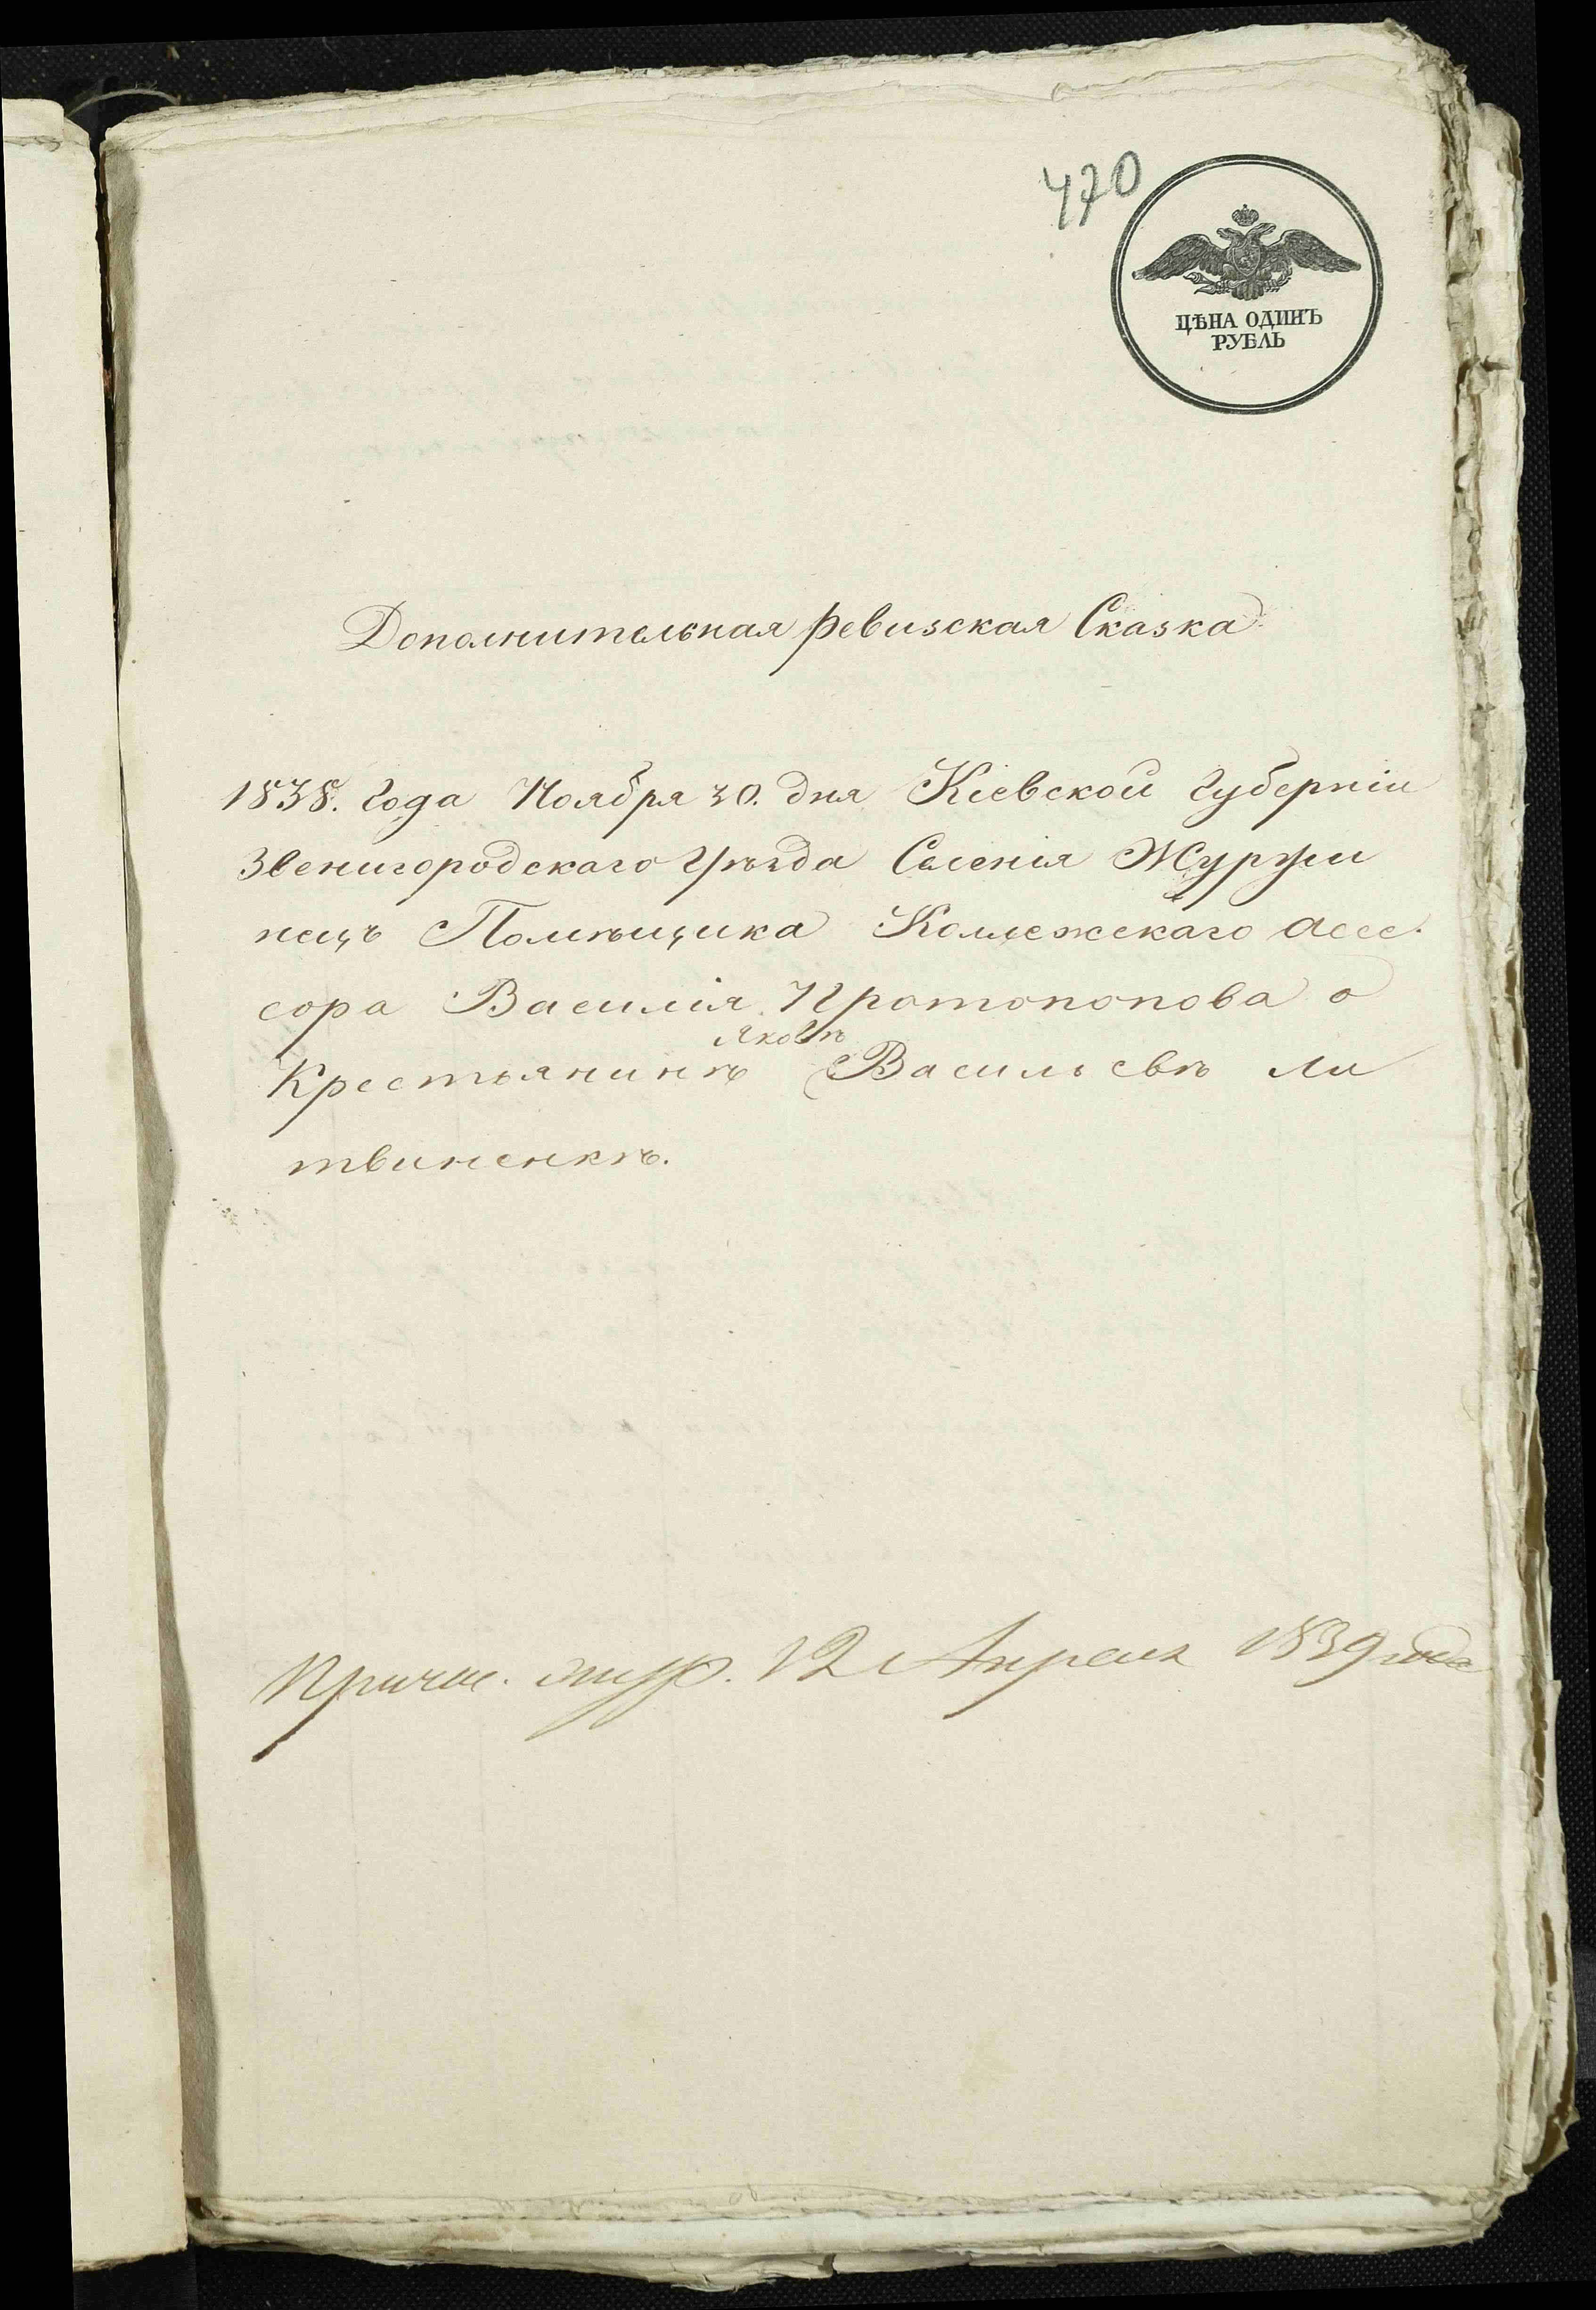 470
ЦѢНА ОДИНЪ
РУБЛЬ
Дополнительная ревизская Сказка
1838. Года Ноября 30. дня Кіевской Губерніи
Звенигородскаго Уѣзда Селенія Журжи
нецъ Помѣщика Коллежскаго Ассе.
сора Василія Протопопова о
Яковѣ
Крестьянинѣ Васильевѣ Ли
твиненкѣ.
12 Апреля 1839 года